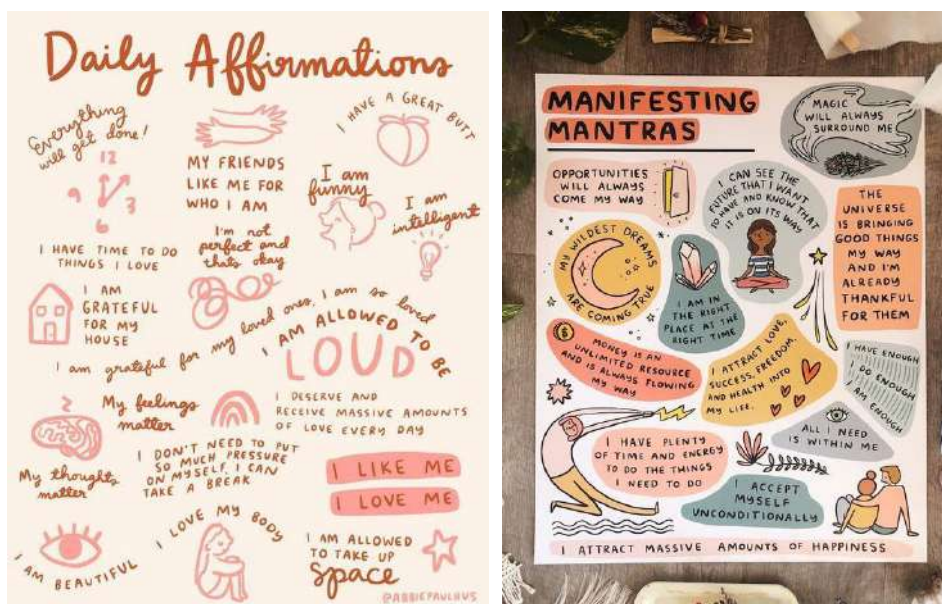 Daily Affirmations
Everything
will get done!
12
9
3
6
I HAVE TIME TO DO
THINGS I LOVE
MY FRIENDS
LIKE ME FOR
WHO I AM
I HAVE A GREAT BUTT
I am
funny
I am
intelligent
I'm not
perfect and
thats okay
I AM
GRATEFUL
FOR MY
HOUSE
I am grateful for my loved ones, I am so loved
I AM ALLOWED TO BE
LOUD
My feelings
matter
I DESERVE AND
RECEIVE MASSIVE AMOUNTS
OF LOVE EVERY DAY
My thoughts
matter
I DON'T NEED TO PUT
SO MUCH PRESSURE
ON MYSELF, I CAN
TAKE A BREAK
I LIKE ME
I LOVE ME
I AM BEAUTIFUL
I LOVE MY BODY
I AM ALLOWED
TO TAKE UP
space
@ABBIEPAULHUS
MANIFESTING
MANTRAS
MAGIC
WILL ALWAYS
SURROUND ME
OPPORTUNITIES
WILL ALWAYS
COME MY WAY
I CAN SEE THE
FUTURE THAT I WANT
TO HAVE AND KNOW THAT
IT IS ON ITS WAY
THE
UNIVERSE
IS BRINGING
GOOD THINGS
MY WAY
AND I'M
ALREADY
THANKFUL
FOR THEM
MY WILDEST DREAMS
ARE COMING TRUE
I AM IN
THE RIGHT
PLACE AT THE
RIGHT TIME
MONEY IS AN
UNLIMITED RESOURCE
AND IS ALWAYS FLOWING
MY WAY
I ATTRACT LOVE,
SUCCESS, FREEDOM,
AND HEALTH INTO
MY LIFE.
I HAVE ENOUGH
I DO ENOUGH
I AM ENOUGH
ALL I NEED
IS WITHIN ME
I HAVE PLENTY
OF TIME AND ENERGY
TO DO THE THINGS
I NEED TO DO
I ACCEPT
MYSELF
UNCONDITIONALLY
I ATTRACT MASSIVE AMOUNTS OF HAPPINESS